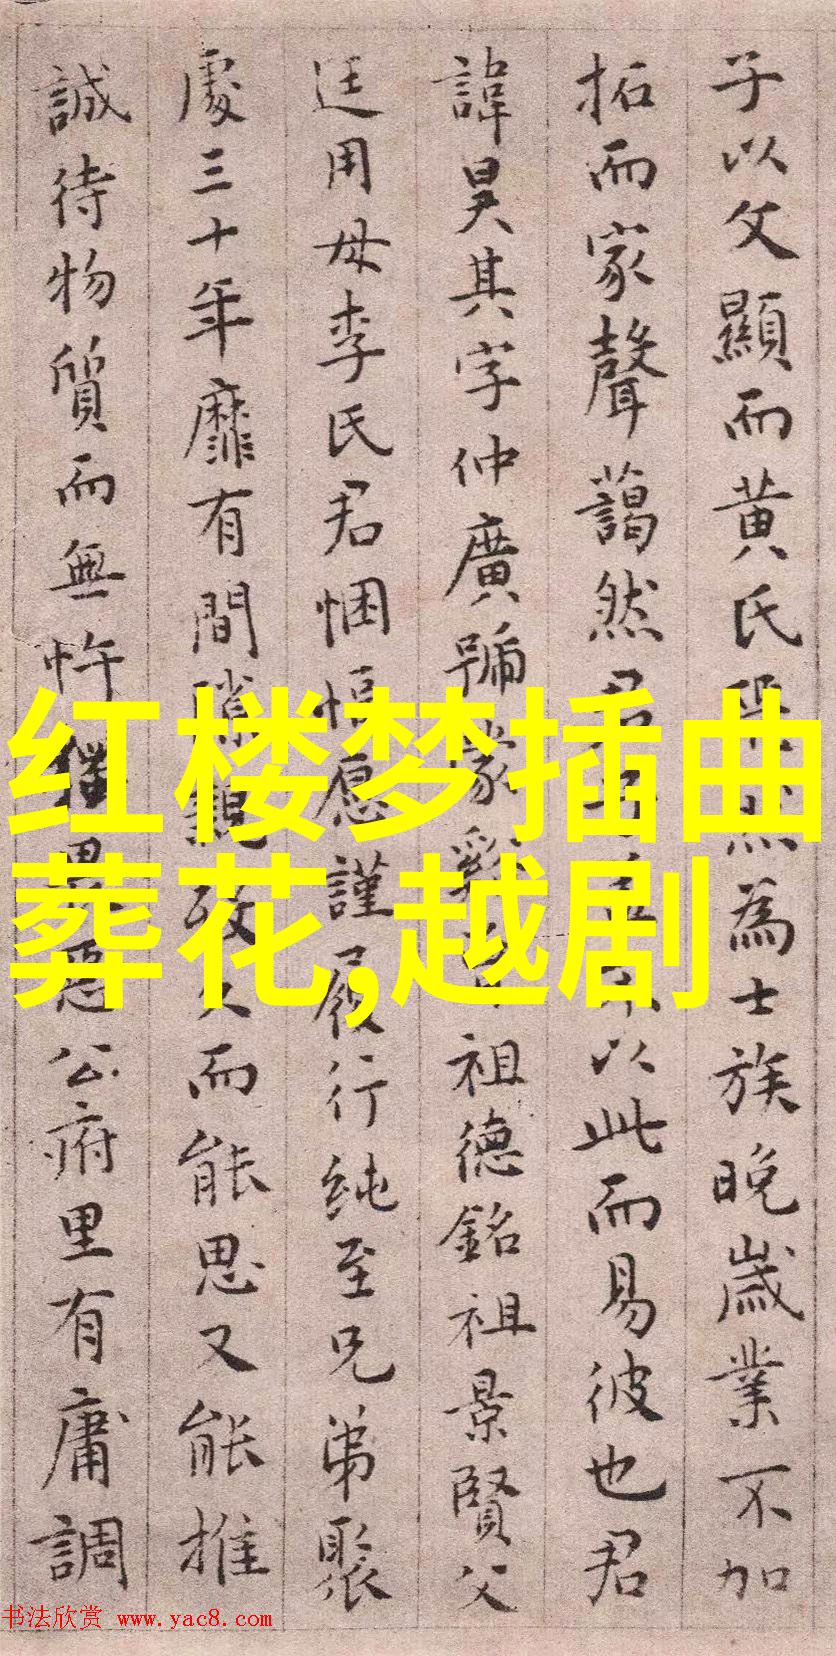 子以父顯而黄氏為士族晚歲業不加
拓而家聲藹然君以此而易彼也君
諱昊其字仲廣號蒙祖德銘祖景賢父
廷用母李氏君悃愊愿謹履行纯至兄弟聚
處三十年靡有間親故久而能思又能推
誠待物質而無忤公府里有庸調
红楼梦插曲
葬花,越剧
书法欣赏 www.yac8.com